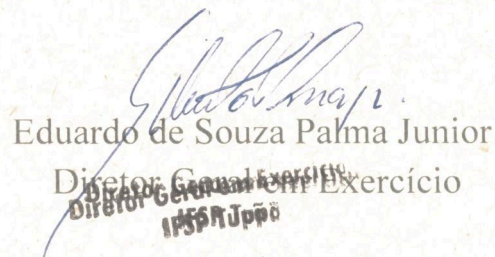 Eduardo de Souza Palma Junior
Diretor Geral em Exercício
Diretor Geral em Exercício
IFSP